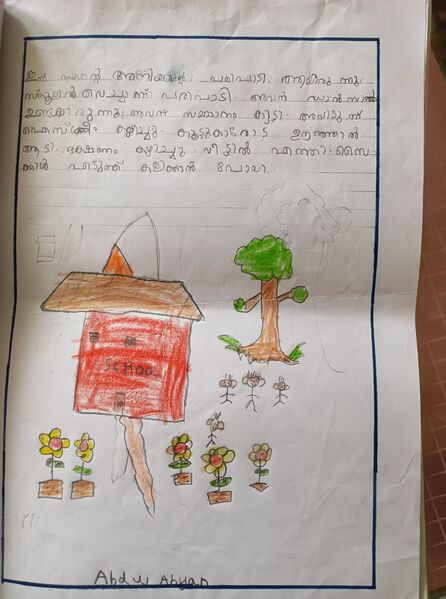 ഇന്ന് എന്റെ അനിയന്റെ പരിപാടി ആയിരുന്നു
സ്കൂളിൽ വെച്ചാണ് പരിപാടി. അവൻ ഡാൻസിൽ
ഉണ്ടായിരുന്നു. അവന് സമ്മാനം കിട്ടി. അവിടുന്ന്
ഐസ്ക്രീം കഴിച്ചു. കൂട്ടുകാരോട ഊഞ്ഞാൽ
ആടി. ഭക്ഷണം കഴിച്ചു. വീട്ടിൽ എത്തി. സൈ
ക്കിൾ എടുത്ത് കളിക്കാൻ പോയി.
SCHOOL
Abdul Abyan